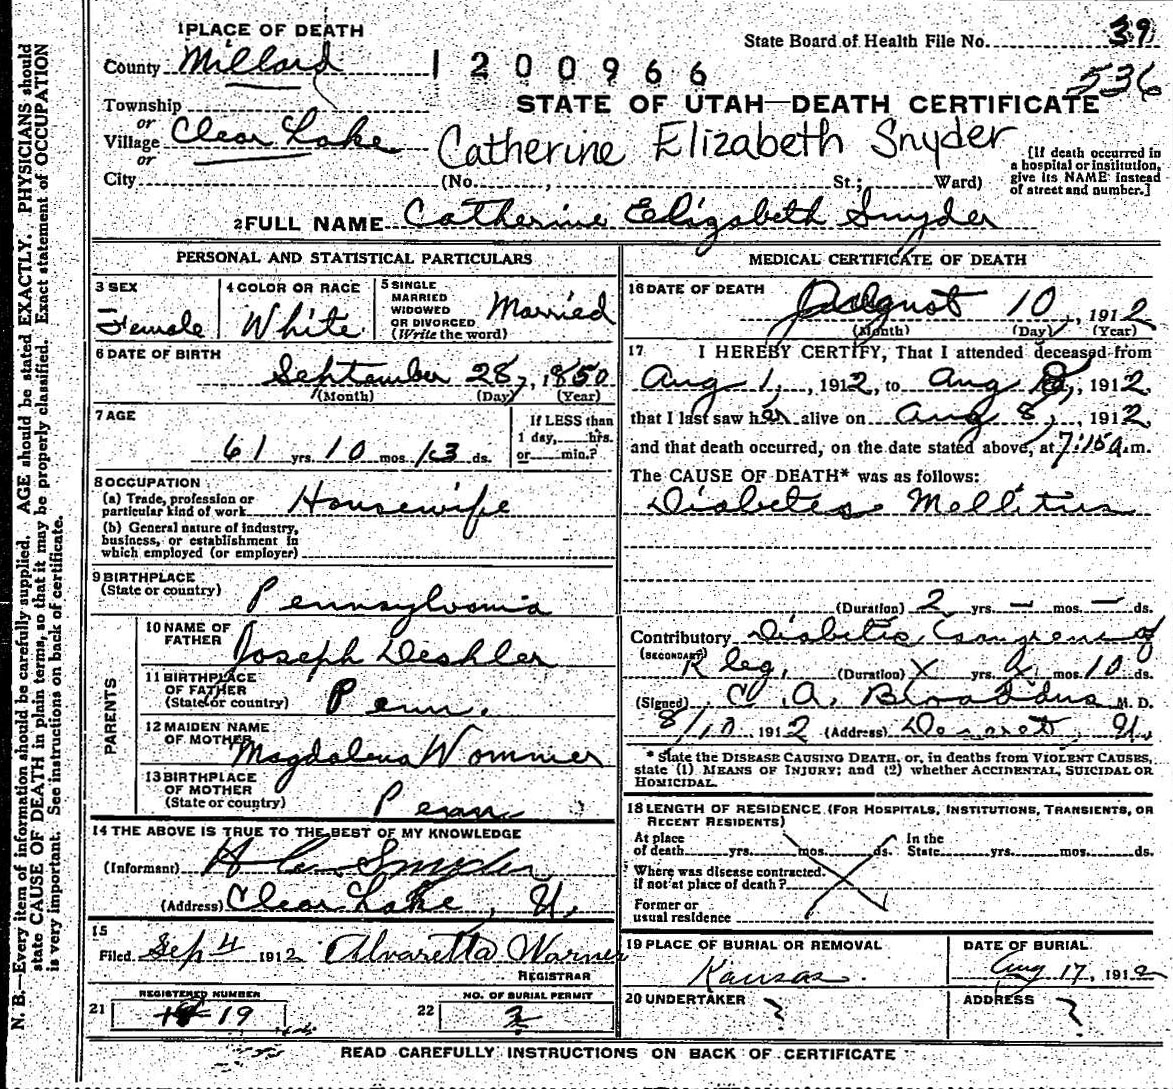 N. B.—Every item of information should be carefully supplied. AGE should be stated EXACTLY. PHYSICIANS should
state CAUSE OF DEATH in plain terms, so that it may be properly classified. Exact statement of OCCUPATION
is very important. See instructions on back of certificate.
1 PLACE OF DEATH
State Board of Health File No. 39
County Millard
1200966
536
STATE OF UTAH—DEATH CERTIFICATE
Township
or
Village Clear Lake
Catherine Elizabeth Snyder
or
City (No. , St.; Ward)
[If death occurred in
a hospital or institution,
give its NAME instead
of street and number.]
2 FULL NAME Catherine Elizabeth Snyder
PERSONAL AND STATISTICAL PARTICULARS
3 SEX
Female
4 COLOR OR RACE
White
5 SINGLE
MARRIED
WIDOWED
OR DIVORCED
(Write the word)
Married
6 DATE OF BIRTH
September 28, 1850
(Month) (Day) (Year)
7 AGE
61 yrs. 10 mos. 13 ds.
If LESS than
1 day, hrs.
or min.?
8 OCCUPATION
(a) Trade, profession or
particular kind of work Housewife
(b) General nature of industry,
business, or establishment in
which employed (or employer)
9 BIRTHPLACE
(State or country)
Pennsylvania
PARENTS
10 NAME OF
FATHER
Joseph Deshler
11 BIRTHPLACE
OF FATHER
(State or country)
Penn.
12 MAIDEN NAME
OF MOTHER
Magdalena Wommer
13 BIRTHPLACE
OF MOTHER
(State or country)
Penn
14 THE ABOVE IS TRUE TO THE BEST OF MY KNOWLEDGE
(Informant) Snyder
(Address) Clear Lake, U.
15
Filed Sep 4 1912 Alvaretta Warner
REGISTRAR
21 REGISTERED NUMBER
19
22 NO. OF BURIAL PERMIT
MEDICAL CERTIFICATE OF DEATH
16 DATE OF DEATH
August 10, 1912
(Month) (Day) (Year)
17 I HEREBY CERTIFY, That I attended deceased from
Aug 1, 1912, to Aug 8, 1912,
that I last saw her alive on Aug 8, 1912
and that death occurred, on the date stated above, at 7:15 a.m.
The CAUSE OF DEATH* was as follows:
Diabetes Mellitus
(Duration) 2 yrs. — mos. — ds.
Contributory Diabetic Gangrene of
(SECONDARY)
R leg, (Duration) X yrs. mos. 10 ds.
(Signed) C. A. Broaddus M. D.
8/10 1912 (Address) Deseret, U.
* State the DISEASE CAUSING DEATH, or, in deaths from VIOLENT CAUSES,
state (1) MEANS OF INJURY; and (2) whether ACCIDENTAL, SUICIDAL OR
HOMICIDAL.
18 LENGTH OF RESIDENCE (FOR HOSPITALS, INSTITUTIONS, TRANSIENTS, OR
RECENT RESIDENTS)
At place
of death yrs. mos. ds.
In the
State yrs. mos. ds.
Where was disease contracted.
if not at place of death?
Former or
usual residence
19 PLACE OF BURIAL OR REMOVAL
Kansas
DATE OF BURIAL
Aug 17, 1912
20 UNDERTAKER
?
ADDRESS
?
READ CAREFULLY INSTRUCTIONS ON BACK OF CERTIFICATE